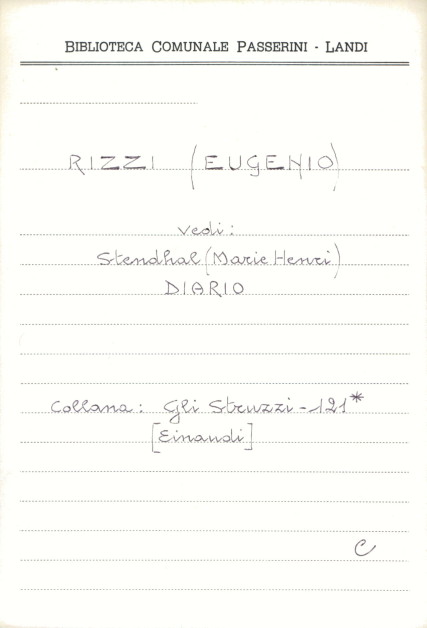 BIBLIOTECA COMUNALE PASSERINI - LANDI
RIZZI (EUGENIO)
vedi:
Stendhal (Marie Henri)
DIARIO
Collana: Gli Struzzi - 121*
[Einaudi]
C